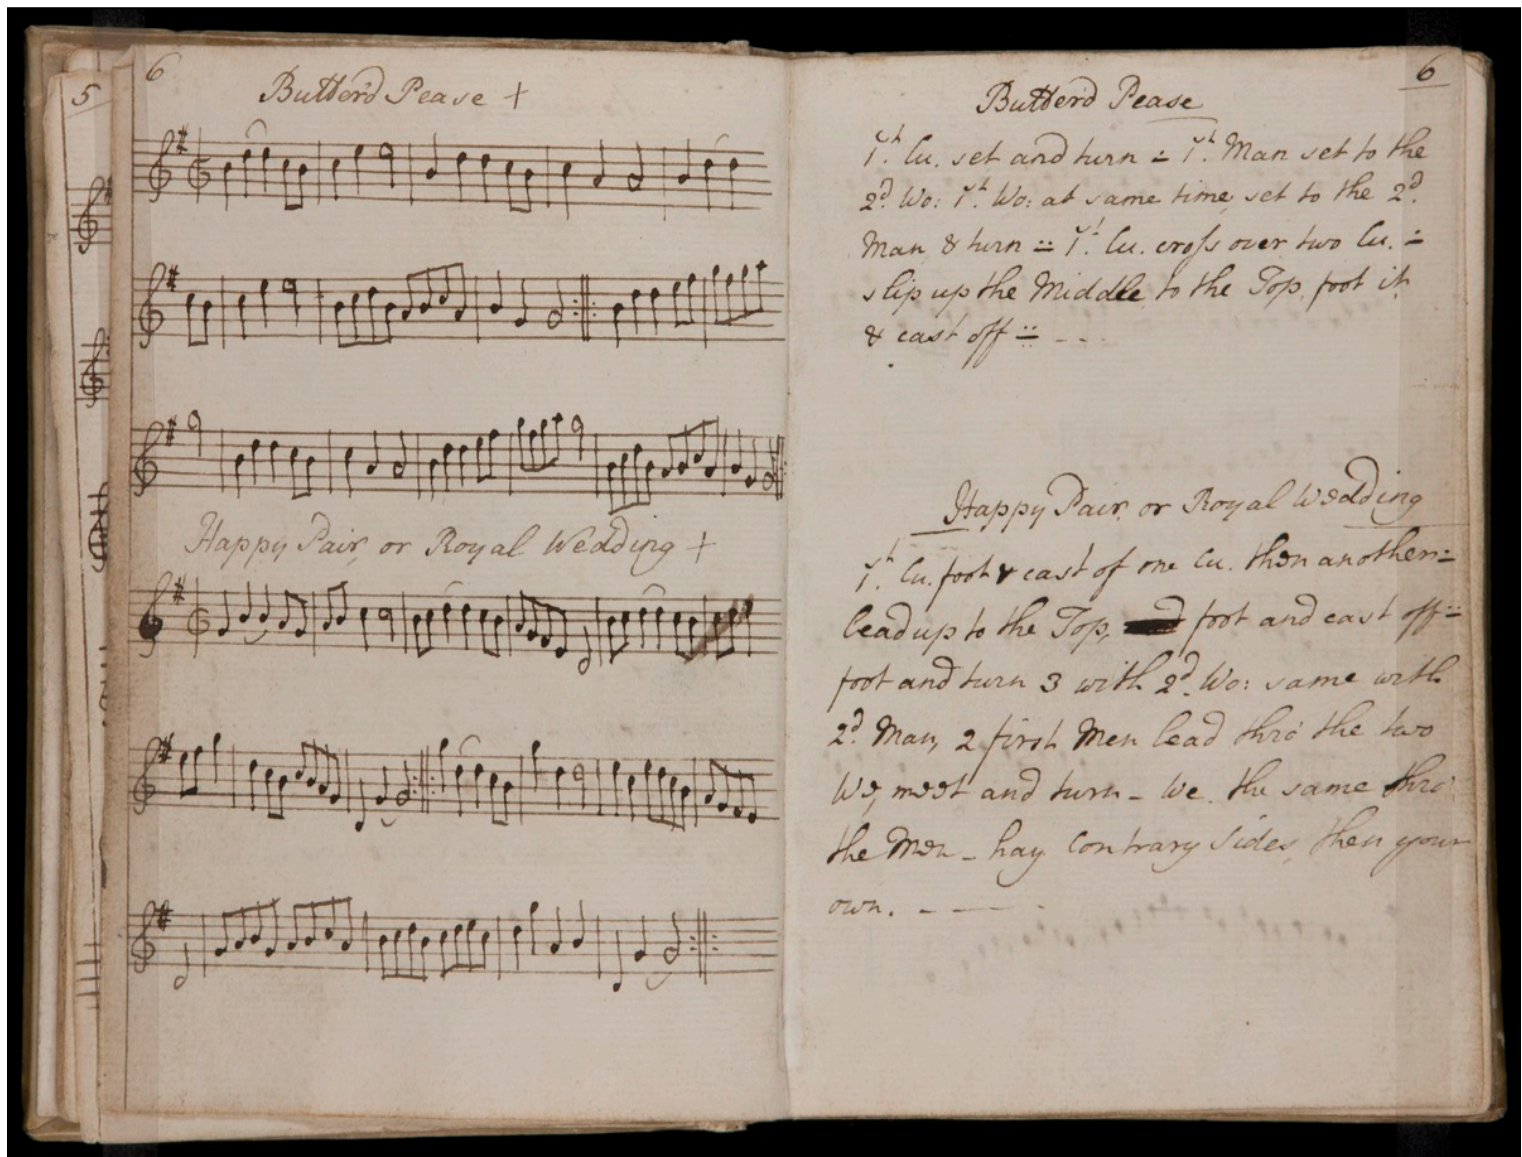 5
6
Butter'd Pease +
Happy Pair, or Royal Wedding +
6
Butter'd Pease
1.st Cu. set and turn ∸ 1.st Man set to the
2.d Wo: 1.st Wo: at same time, set to the 2.d
Man & turn ∺ 1.st Cu. cross over two Cu. ∸
slip up the Middle to the Top, foot it
& cast off ∺ - - -
Happy Pair, or Royal Wedding
1.st Cu. foot & cast of one Cu. then another ∸
lead up to the Top, foot and cast off ∺
foot and turn 3 with 2.d Wo: same with
2.d Man, 2 first Men lead thro' the two
We, meet and turn - We. the same thro'
the Men - hay Contrary Sides, then your
own. - — -